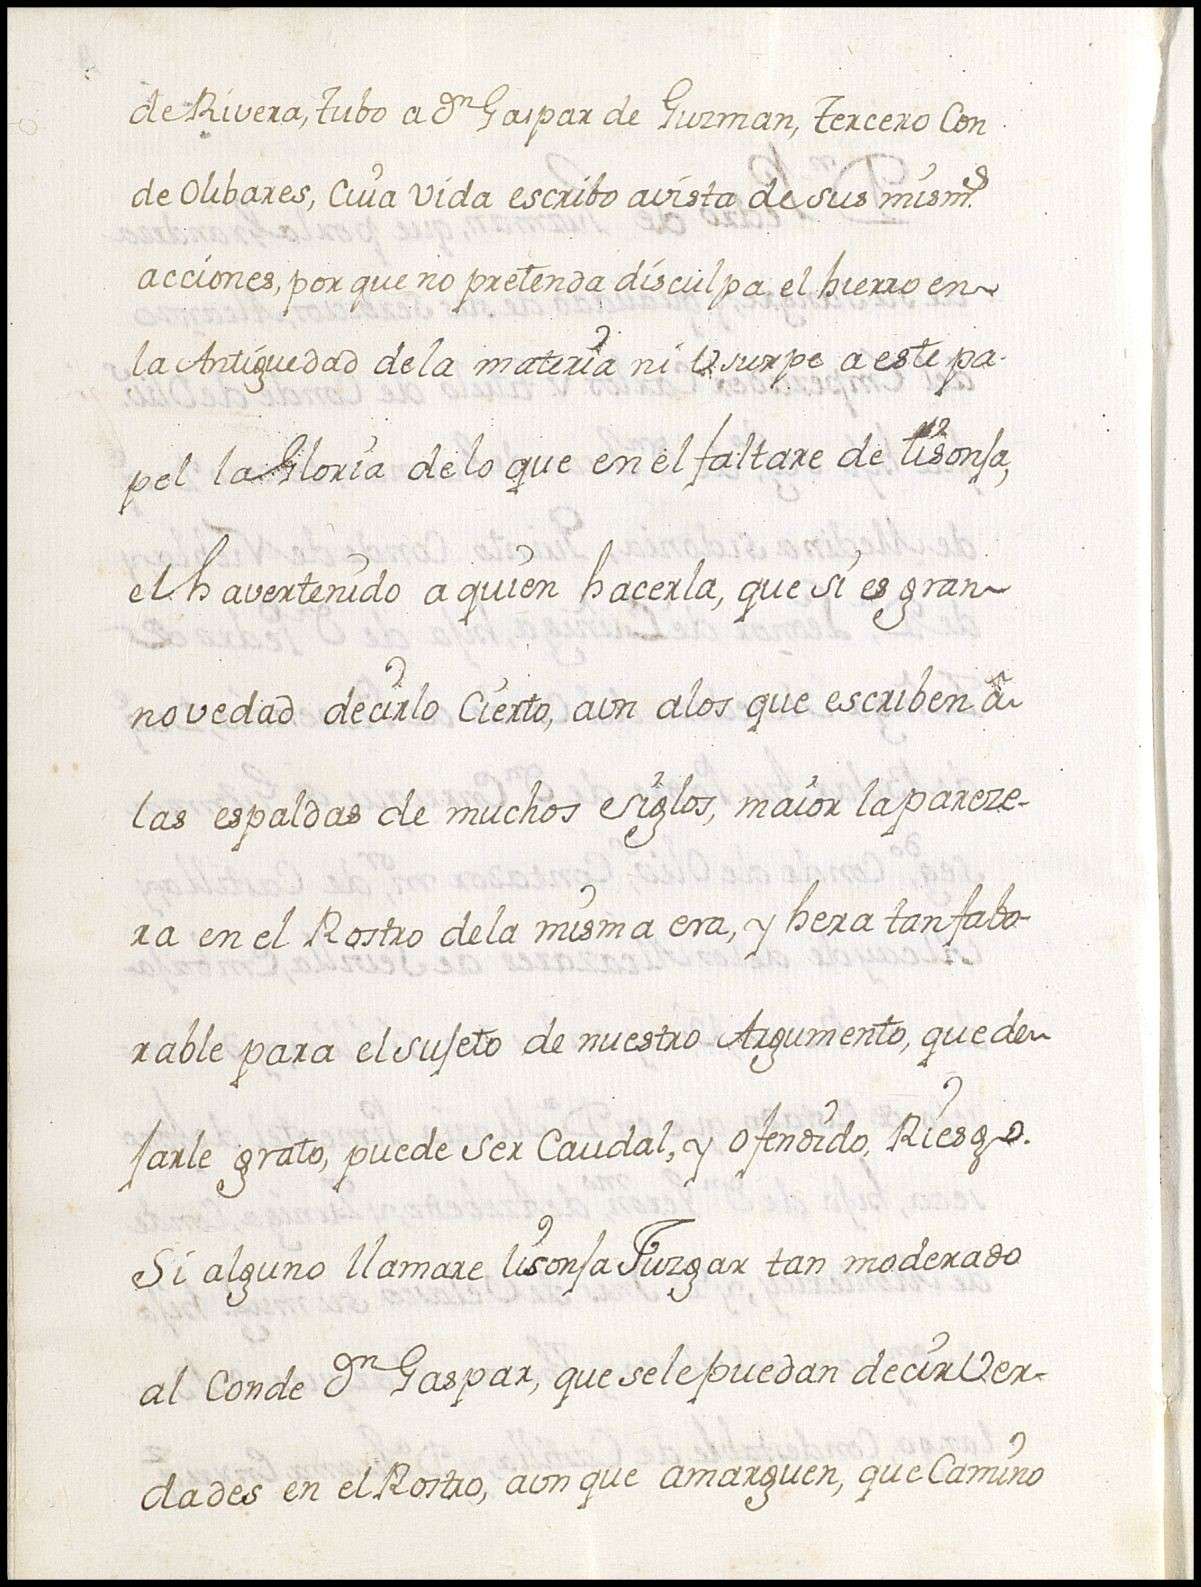 de Rivera, tubo a Dn Gaspar de Guzman, tercero Con
de Olibares, Cuia vida escribo avista de sus mismas
acciones, por que no pretenda disculpa el hierro en
la Antiguedad dela materia ni Vsurpe a este pa-
pel la Gloria de lo que en el faltare de lisonja,
el haver tenido a quien hacerla, que si es gran
novedad decirlo Cierto, aun alos que escriben â
las espaldas de muchos siglos, maior la pareze-
ra en el Rostro dela misma era, y hera tan fabo-
rable para el sujeto de nuestro Argumento, que de
jarle grato, puede ser Caudal, y ofendido, Riesgo.
Si alguno llamare lisonja Juzgar tan moderado
al Conde Dn Gaspar, que sele puedan decir Ver-
dades en el Rostro, aun que amarguen, que Camino